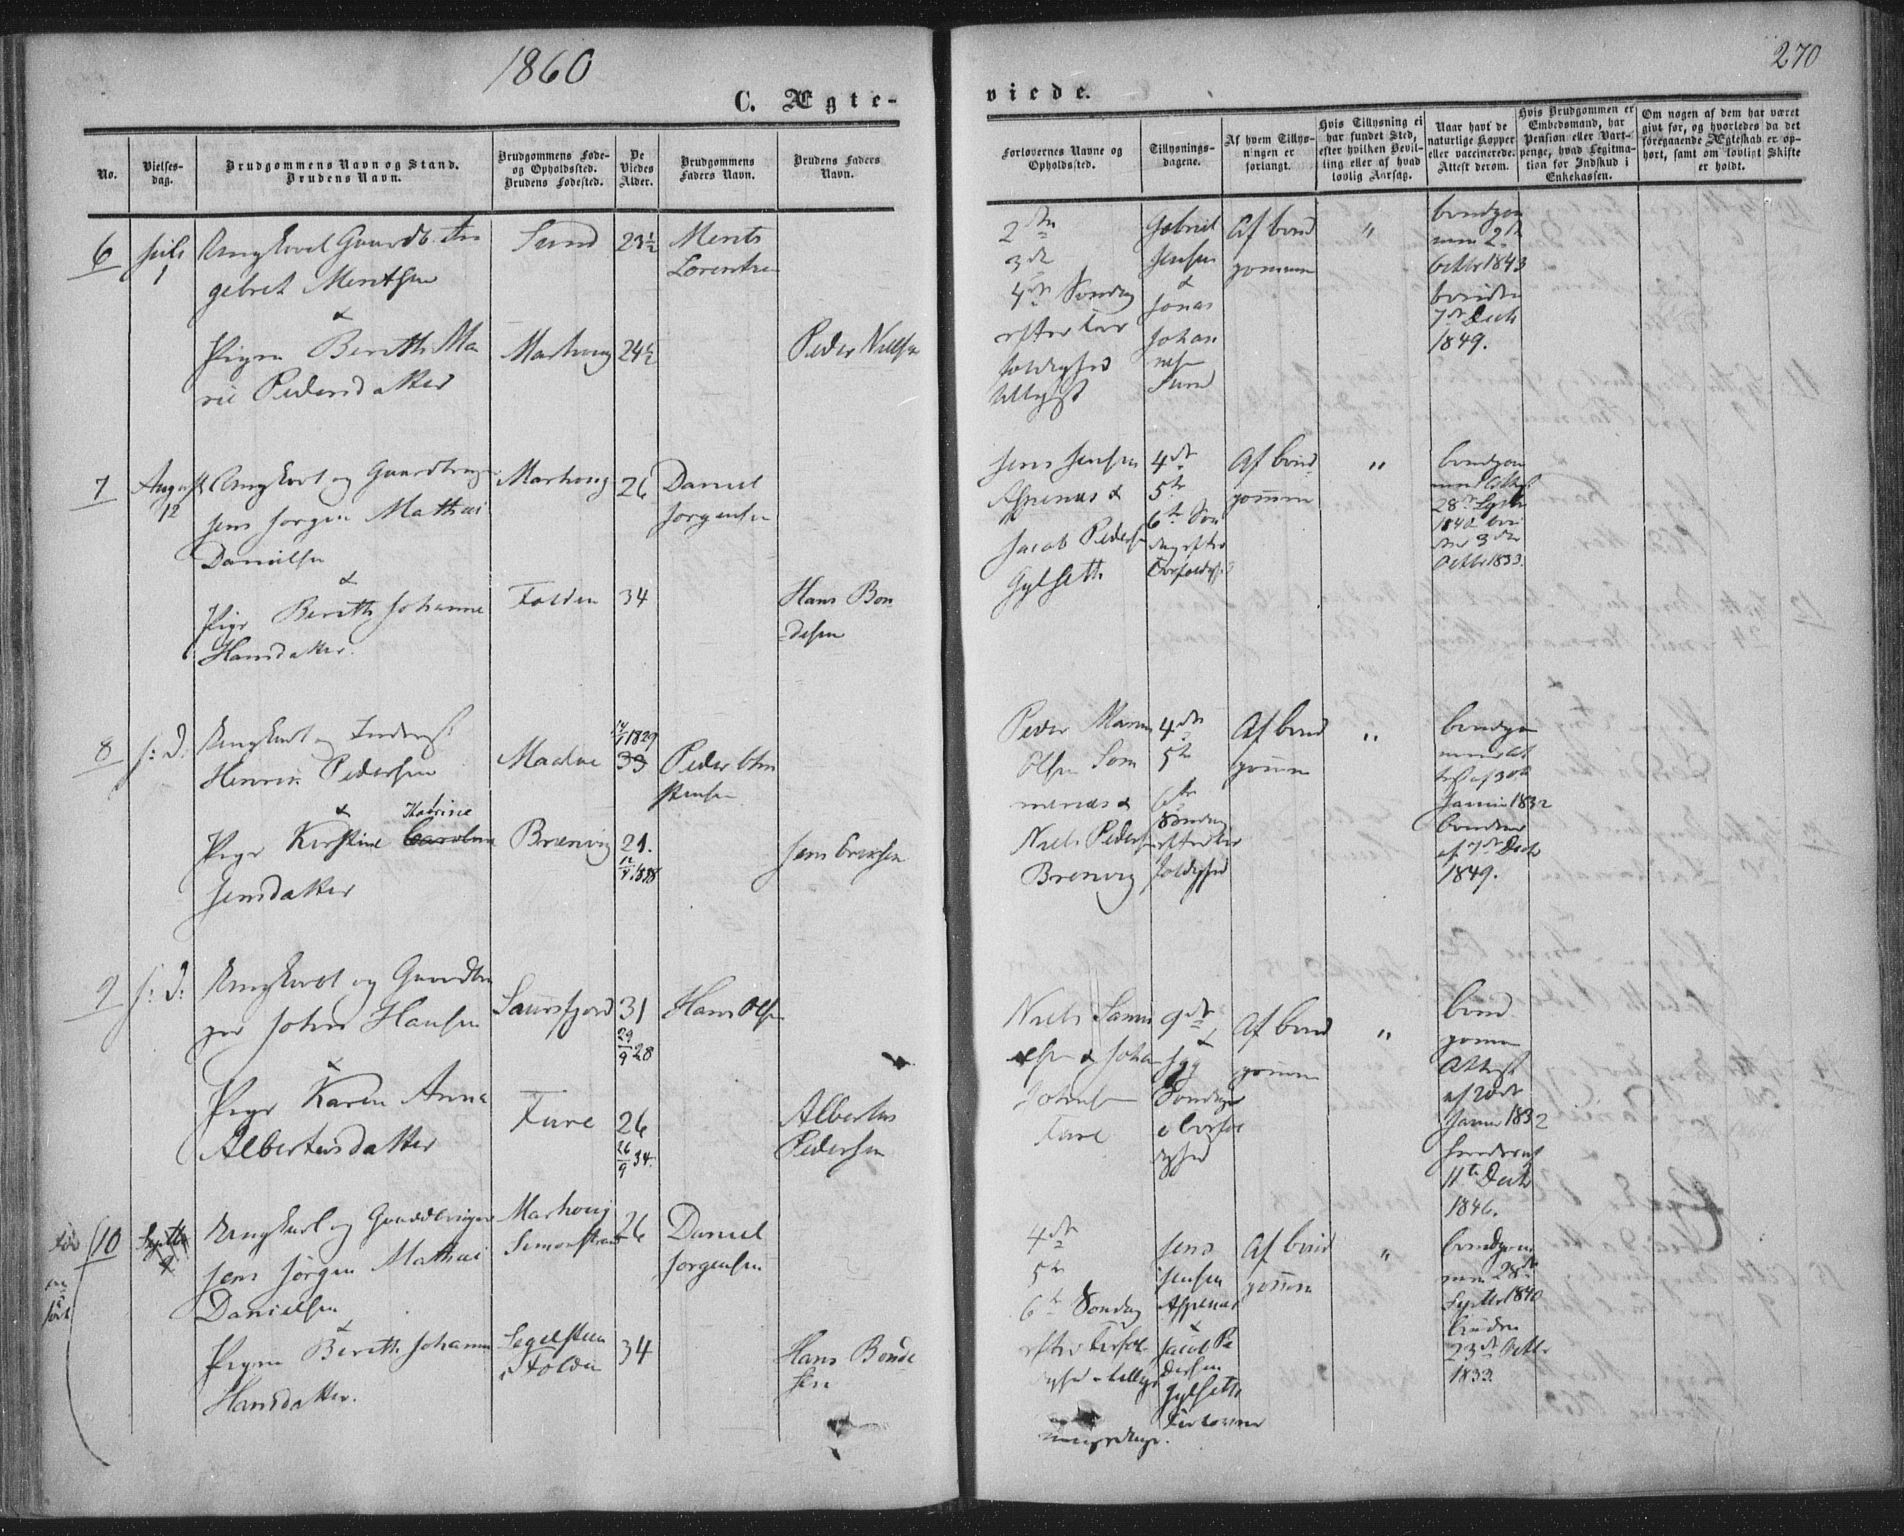 1860
270
C. Ægte-
viede.
No.
Vielses-
dag.
Brudgommens Navn og Stand.
Brudens Navn.
Brudgommens Føde-
og Opholdssted.
Brudens Fødested.
De
Viedes
Alder.
Brudgommens
Faders Navn.
Brudens Faders
Navn.
Forlovernes Navne og
Opholdssted.
Tillysnings-
dagene.
Af hvem Tillys-
ningen er
forlangt.
Hvis Tillysning ei
har fundet Sted,
efter hvilken Bevil-
ling eller af hvad
lovlig Aarsag.
Naar havt de
naturlige Kopper
eller vaccinerede.
Attest derom.
Hvis Brudgommen er
Embedsmand, har
Pension eller Vart-
penge, hvad Legitima-
tion for Indskud i
Enkekassen.
Om nogen af dem har været
gift før, og hvorledes da det
foregaaende Ægteskab er op-
hørt, samt om lovligt Skifte
er holdt.
6
Juli
1
Ungkarl Gaardb. An
gebret Mentsen
&
Pigen Bereth Ma
rie Pedersdatter
Sund
Marhoug
23½
24½
Ments
Lorentsen
Peder Nielsen
2den
3die
4de Søndag
efter Tre
foldighed
tillyst
Gabriel
Jensen
&
Jonas
Johan
nesen
Sund
Af brud
gommen
"
brudgom
men 2den
Octbr 1843
bruden
7de Decb
1849.
7
August
12
Ungkarl og Gaardbruger
Jens Jørgen Mathias
Danielsen
&
Pige Bereth Johanna
Hansdatter.
Marhoug
Folden
26
34
Daniel
Jørgensen
Hans Bon
desen
Jens Jensen
Aspenæs &
Jacob Pedersen
Gylseth
4de
5te
6te Søn
dag efter
Trefoldigh.
Af brud
gommen
"
brudgom
men Attest
28de Septbr
1840 bru
den 3die
Octbr 1833.
8
s: D:
Ungkarl og Inderst
Henrik Pedersen
&
Katrine
Pige Kirstine Carolina
Jensdatter
Maalnæ
Brænvig
1829
33
21.
1838
Peder Chri
stensen
Jens Ericksen
Peder Marin
Olsen Som
menæs &
Niels Pedersen
Brenvig
4de
5te
6te
Søndag
efter Tre
foldighed
Af brud
gommen
"
brudgom
men At
test af 30te
Januar 1832
brudens
af 7de Decb
1849.
9
s: D:
Ungkarl og Gaardbru
ger Johan Hansen
&
Pige Karen Anna
Albertusdatter
Saursfjord
Fure
31
29/9 28
26
26/9 34.
Hans Olsen
Albertus
Pedersen
Niels Samu
elsen & Johan
Johnsen
Fure
9de
&
Søndage
e Trefol
dighed
Af brud
gommen
"
brud
gommen
Attest
Januar 1832
11te Decb
1846.
10
Septbr
9
Ungkarl og Gaardbruger
Jens Jørgen Mathias
Danielsen
&
Pigen Bereth Johanna
Hansdatter.
Marhoug
Simonstrand
Segelsteen
i Folden
26
34
Daniel
Jørgensen
Hans Bonde
sen
4de
5te
6te Søndag
efter Trefol
dighed tillyst
Jens
Jensen
Aspenæs
&
Jacob Pe
dersen
Gylseth
Forlovere
Af brud
gommen
"
brudgom
men 28de
Septbr 1840
bruden
23de Octbr
1833.